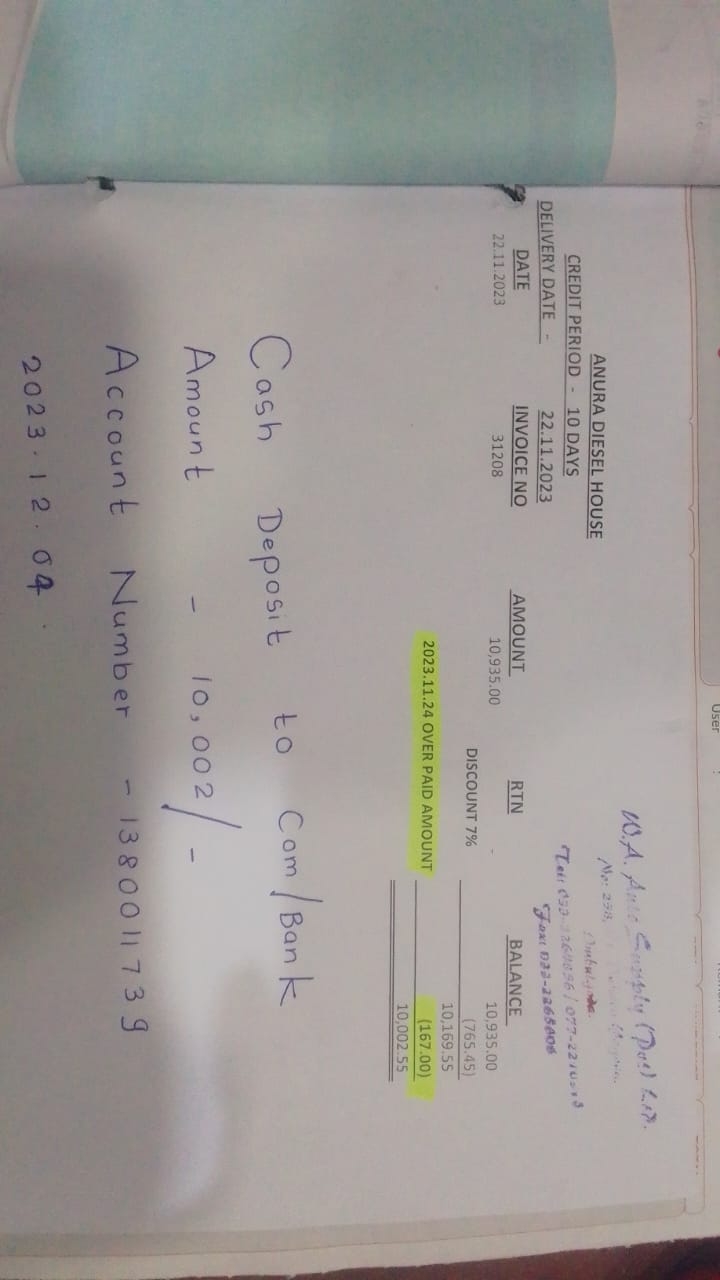 ANURA DIESEL HOUSE
CREDIT PERIOD - 10 DAYS
DELIVERY DATE - 22.11.2023
DATE INVOICE NO AMOUNT RTN BALANCE
22.11.2023 31208 10,935.00 - 10,935.00
DISCOUNT 7% (765.45)
10,169.55
2023.11.24 OVER PAID AMOUNT (167.00)
10,002.55
W.A. Auto Supply (Pvt) Ltd.
No: 298,
Cash Deposit to Com/Bank
Amount - 10,002/-
Account Number - 1380011739
2023.12.04.
User